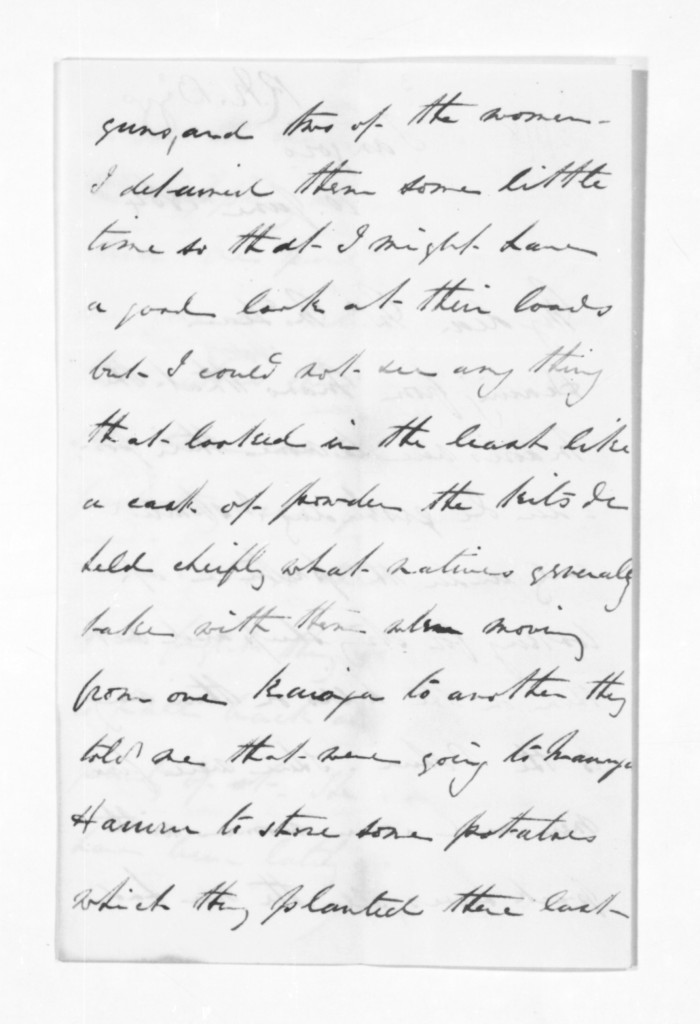 guns, and two of the women
I detained them some little
time so that I might have
a good look at their loads
but I could not see any thing
that looked in the least like
a cask of powder the kits &c
held cheifly what natives generaly
take with them when moving
from one Kainga to another they
told me that were going to
to store some potatoes
which they planted there last